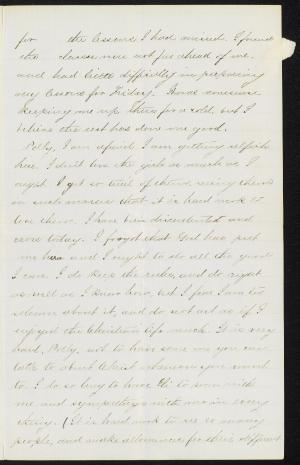 for the lessons I had missed. I found
the classes were not far ahead of me,
and had little difficulty in preparing
my lessons for Friday. Anna
keeping me up there for a cold, but I
believe the rest has done me good.
Polly, I am afraid I am getting selfish
here. I don't love the girls as much as I
ought. I get so tired of them, seeing them
in such masses that it is hard work to
love them. I have been discontented and
cross today. I forgot that God has put
me here and I ought to do all the good
I can. I do keep the rules, and do right
as well as I know how, but I fear I am too
solemn about it, and do not act as if I
enjoyed the Christian life much. It is very
hard, Polly, not to have some one you can
talk to about Christ whenever you want
to. I do so long to have to room with
me and sympathize with me in every
thing. It is hard work to see so many
people, and make allowances for their different